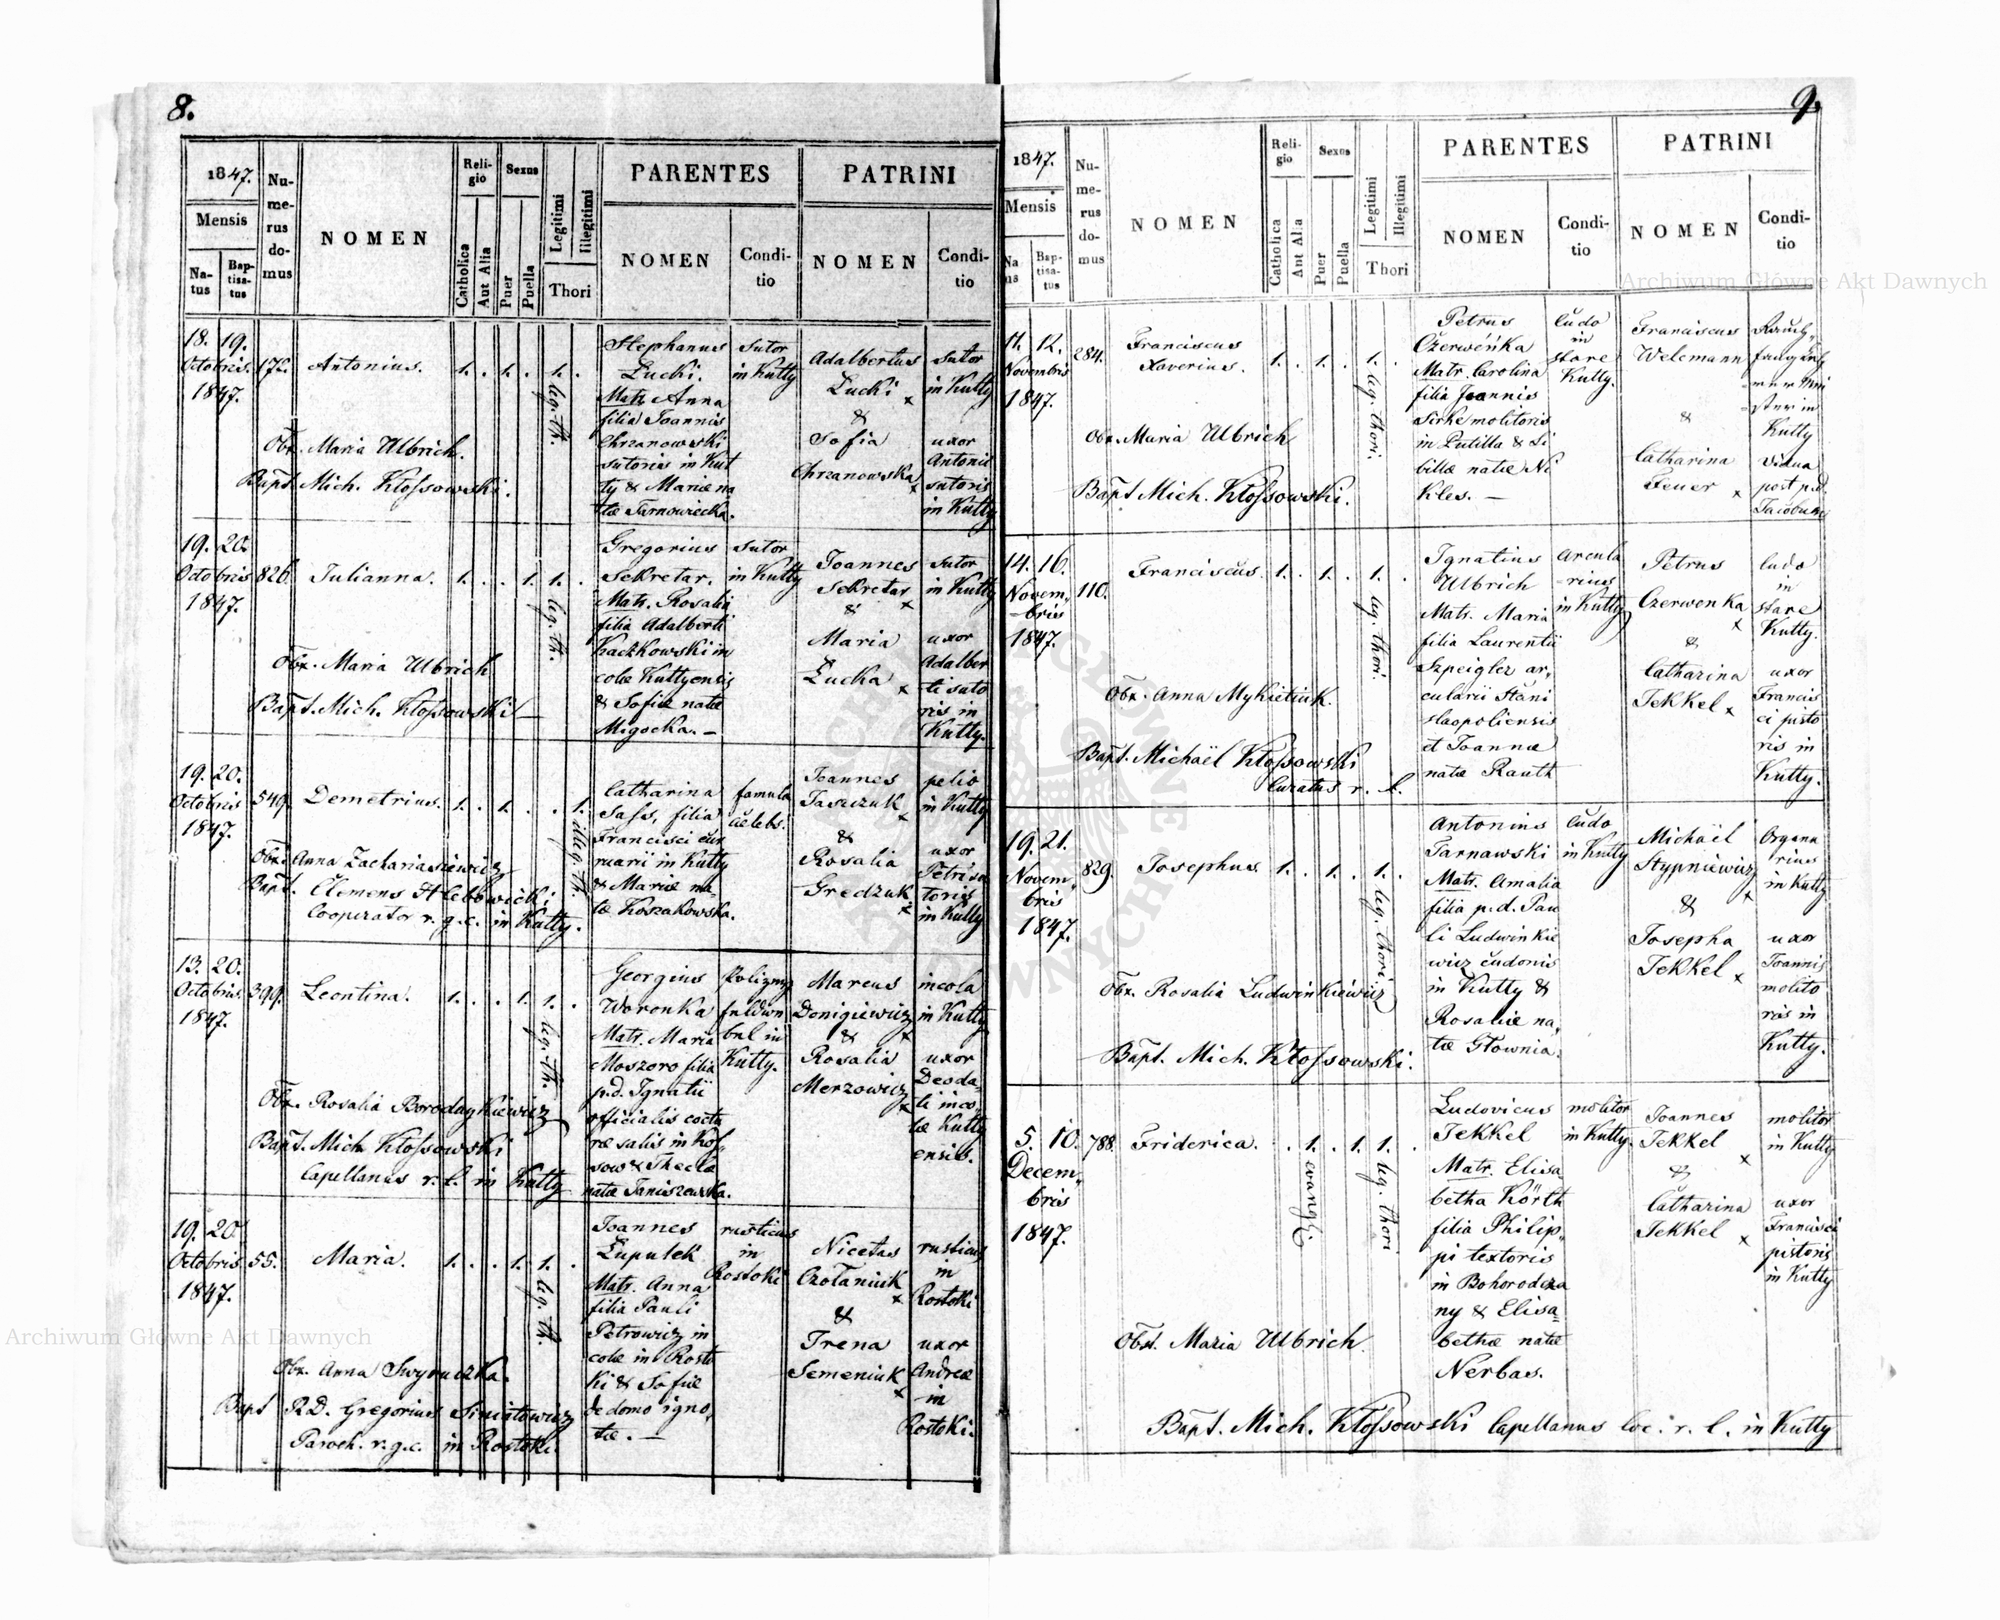 8.
1847.
Mensis
Na-
tus
Bap-
tisa-
tus
Nu-
me-
rus
do-
mus
NOMEN
Reli-
gio
Catholica
Aut Alia
Sexus
Puer
Puella
Legitimi
Illegitimi
Thori
PARENTES
NOMEN
Condi-
tio
PATRINI
NOMEN
Condi-
tio
18. 19.
Octobris
1847.
172.
Antonius.
1. . 1. . 1. .
leg. th.
Obx. Maria Ulbrich.
Bapt. Mich. Kłossowski.
Stephanus
Łucki.
Matr. Anna
filia Joannis
Chrzanowski
sutoris in Kut
ty & Mariæ na
tæ Tarnowiecka.
sutor
in Kutty
Adalbertus
Łucki x
&
Sofia
Chrzanowska x
sutor
in Kutty
uxor
Antonii
sutoris
in Kutty
19. 20.
Octobris
1847.
826.
Julianna.
1. . . 1. 1. .
leg. th.
Obx. Maria Ulbrich
Bapt. Mich. Kłossowski —
Gregorius
Sekretar.
Matr. Rosalia
filia Adalberti
Kaczkowski in
colæ Kuttyensis
& Sofiæ natæ
Migocka. —
sutor
in Kutty
Joannes
Sekretar x
&
Maria
Łucka x
sutor
in Kutty
uxor
Adalber
ti suto
ris in
Kutty.
19. 20.
Octobris
1847.
549.
Demetrius.
1. . 1. . . 1.
illeg. th.
Obx. Anna Zachariasiewicz
Bapt. Clemens Hlebowicki
Cooperator r. g. c. in Kutty.
Catharina
Sass, filia
Francisci cur
ruarii in Kutty
& Mariæ na-
tæ Koszakowska.
famula
cælebs.
Joannes
Tasiczuk x
&
Rosalia
Gredzuk x
pelio
in Kutty
uxor
Petri su
toris
in Kutty
13. 20.
Octobris
1847.
399.
Leontina.
1. . . 1. 1. .
leg. th.
Obx. Rosalia Borodaykiewicz
Bapt. Mich. Kłossowski
Capellanus r. l. in Kutty
Georgius
Woronka
Matr. Maria
Moszoro filia
p.d. Ignatii
officialis coctu
ræ salis in Kos-
sow & Thecla
natæ Janiszewska.
in
Kutty.
Marcus
Donigiewicz x
&
Rosalia
Merzowicz x
incola
in Kutty
uxor
Deoda-
ti inco-
læ Kutty
ensis.
19. 20.
Octobris
1847.
55.
Maria.
1. . . 1. 1. .
leg. th.
Obx. Anna Swyruczka.
Bapt R.D. Gregorius Siniatowicz
Paroch. r. g. c. in Rostoki.
Joannes
Łupulek
Matr. Anna
filia Pauli
Petrowicz in
colæ in Rosto
ki & Sofiæ
de domo igno-
tæ. —
rusticus
in
Rostoki
Nicetas
Czołaniuk x
&
Irena
Semeniuk x
rusticus
in
Rostoki
uxor
Andreæ
in
Rostoki.
9.
1847.
Mensis
Na
us
Bap-
tisa-
tus
Nu-
me-
rus
do-
mus
NOMEN
Reli-
gio
Catholica
Aut Alia
Sexus
Puer
Puella
Legitimi
Illegitimi
Thori
PARENTES
NOMEN
Condi-
tio
PATRINI
NOMEN
Condi-
tio
11. 12.
Novembris
1847.
284.
Franciscus
Xaverius.
1. . 1. . 1. .
leg. thori.
Obx. Maria Ulbrich
Bapt Mich. Kłossowski.
Petrus
Czerweńka
Matr. Carolina
filia Joannis
Sirke molitoris
in Putilla & Si
billæ natæ Ni
kles. —
ludo
in
stare
Kutty.
Franciscus
Welemann
&
Catharina
Feuer x
in
Kutty
vidua
post p.d.
Jacobum
14. 16.
Novem-
bris
1847.
110.
Franciscus.
1. . 1. . 1. .
leg. thori
Obx. Anna Mykietiuk.
Bapt. Michaël Kłossowski
Curatus r. l.
Ignatius
Ulbrich
Matr. Maria
filia Laurentii
Szpeigler ar-
cularii Stani
slaopoliensis
et Joannæ
natæ Rauth
arcula
-rius
in Kutty
Petrus
Czerwenka x
&
Catharina
Jekkel x
ludo
in
stare
Kutty.
uxor
Francis
ci pisto
ris in
Kutty.
19. 21.
Novem-
bris
1847.
829.
Josephus.
1. . 1. . 1. .
leg. thori
Obx. Rosalia Ludwinkiewicz
Bapt. Mich. Kłossowski.
Antonius
Tarnawski
Matr. Amalia
filia p.d. Pau
li Ludwinkie
wicz cudonis
in Kutty &
Rosaliæ na-
tæ Głownia.
cudo
in Kutty
Michaël
Stypniewicz x
&
Josepha
Jekkel x
Organa
rius
in Kutty
uxor
Joannis
molito
ris in
Kutty.
5. 10.
Decem-
bris
1847.
788.
Friderica.
. 1. . 1. 1. .
evangelic
leg. thori
Obst. Maria Ulbrich.
Bapt. Mich. Kłossowski Capellanus loc. r. l. in Kutty
Ludovicus
Jekkel
Matr. Elisa
betha Körth
filia Philip-
pi textoris
in Bohorodcza
ny & Elisa-
bethæ natæ
Nerbas.
molitor
in Kutty.
Joannes
Jekkel x
&
Catharina
Jekkel x
molitor
in Kutty
uxor
Francisci
pistoris
in Kutty
Archiwum Główne Akt Dawnych
Archiwum Główne Akt Dawnych